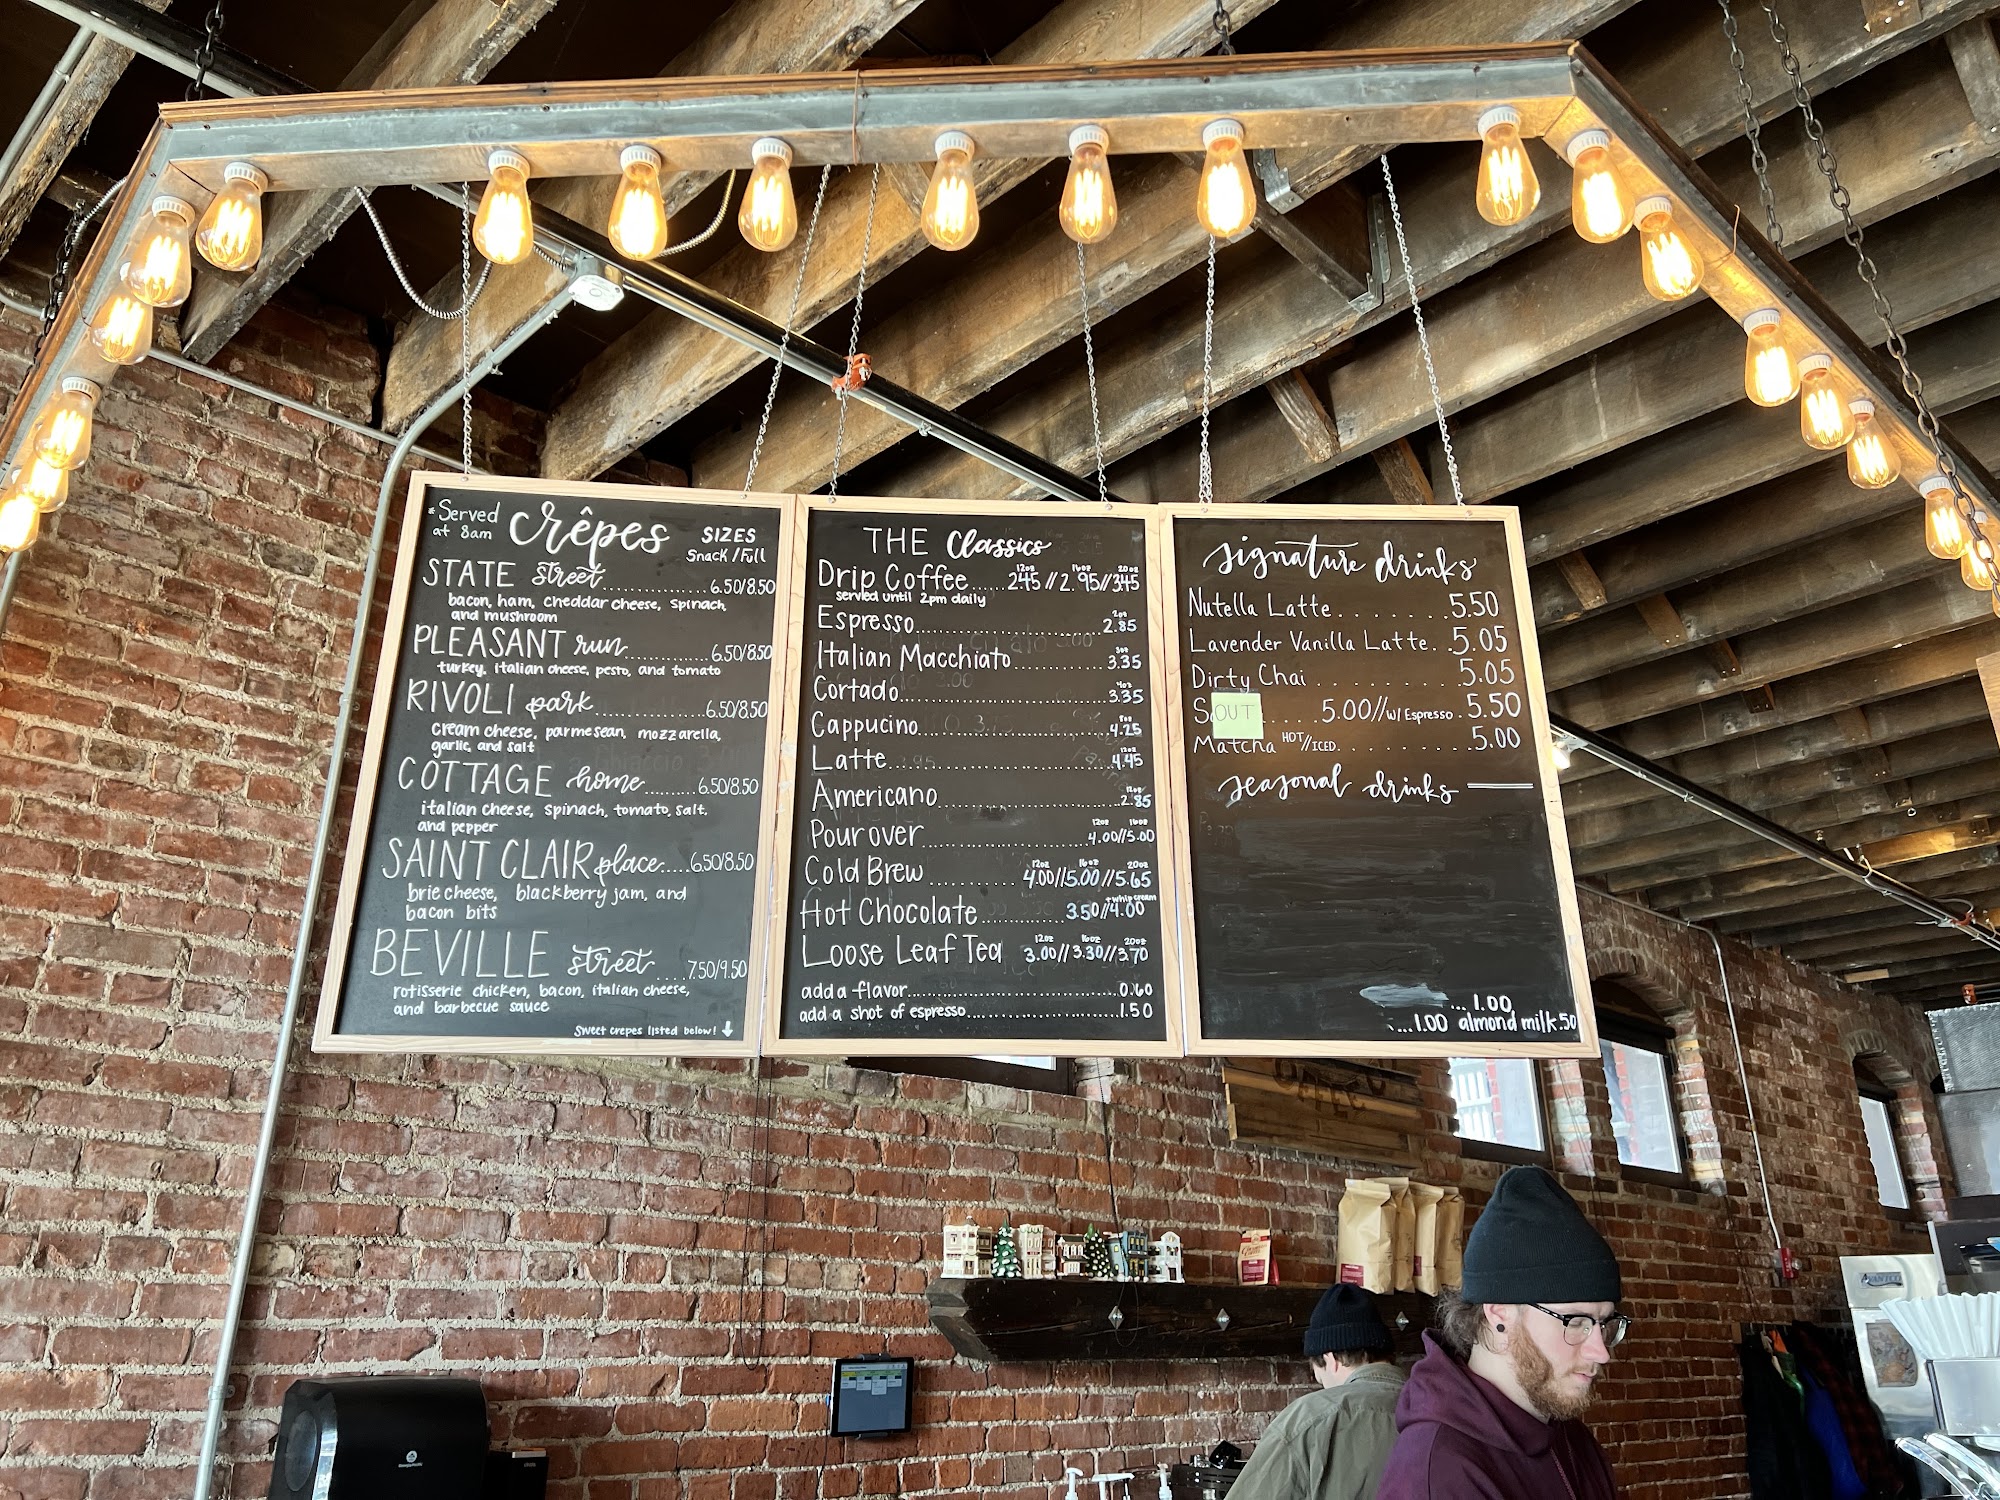 *Served at 8am
crêpes
SIZES
Snack/Full
STATE street..........6.50/8.50
bacon, ham, cheddar cheese, spinach,
and mushroom
PLEASANT run..........6.50/8.50
turkey, italian cheese, pesto, and tomato
RIVOLI park..........6.50/8.50
cream cheese, parmesean, mozzarella,
garlic, and salt
COTTAGE home..........6.50/8.50
italian cheese, spinach, tomato, salt,
and pepper
SAINT CLAIR place.....6.50/8.50
brie cheese, blackberry jam, and
bacon bits
BEVILLE street....7.50/9.50
rotisserie chicken, bacon, italian cheese,
and barbecue sauce
Sweet crepes listed below!
THE Classics
12oz 16oz 20oz
Drip Coffee......2.45//2.95//3.45
served until 2pm daily
2oz
Espresso..........2.85
3oz
Italian Macchiato..........3.35
4oz
Cortado..........3.35
8oz
Cappucino..........4.25
12oz
Latte..........4.45
12oz
Americano..........2.85
12oz 16oz
Pour over..........4.00//5.00
12oz 16oz 20oz
Cold Brew..........4.00//5.00//5.65
+whip cream
Hot Chocolate..........3.50//4.00
12oz 16oz 20oz
Loose Leaf Tea 3.00//3.30//3.70
add a flavor..........0.60
add a shot of espresso..........1.50
signature drinks
Nutella Latte.......5.50
Lavender Vanilla Latte..5.05
Dirty Chai.........5.05
S OUT.....5.00//w/ Espresso.5.50
Matcha HOT//ICED.........5.00
seasonal drinks
...1.00
...1.00 almond milk.50
COFFEE